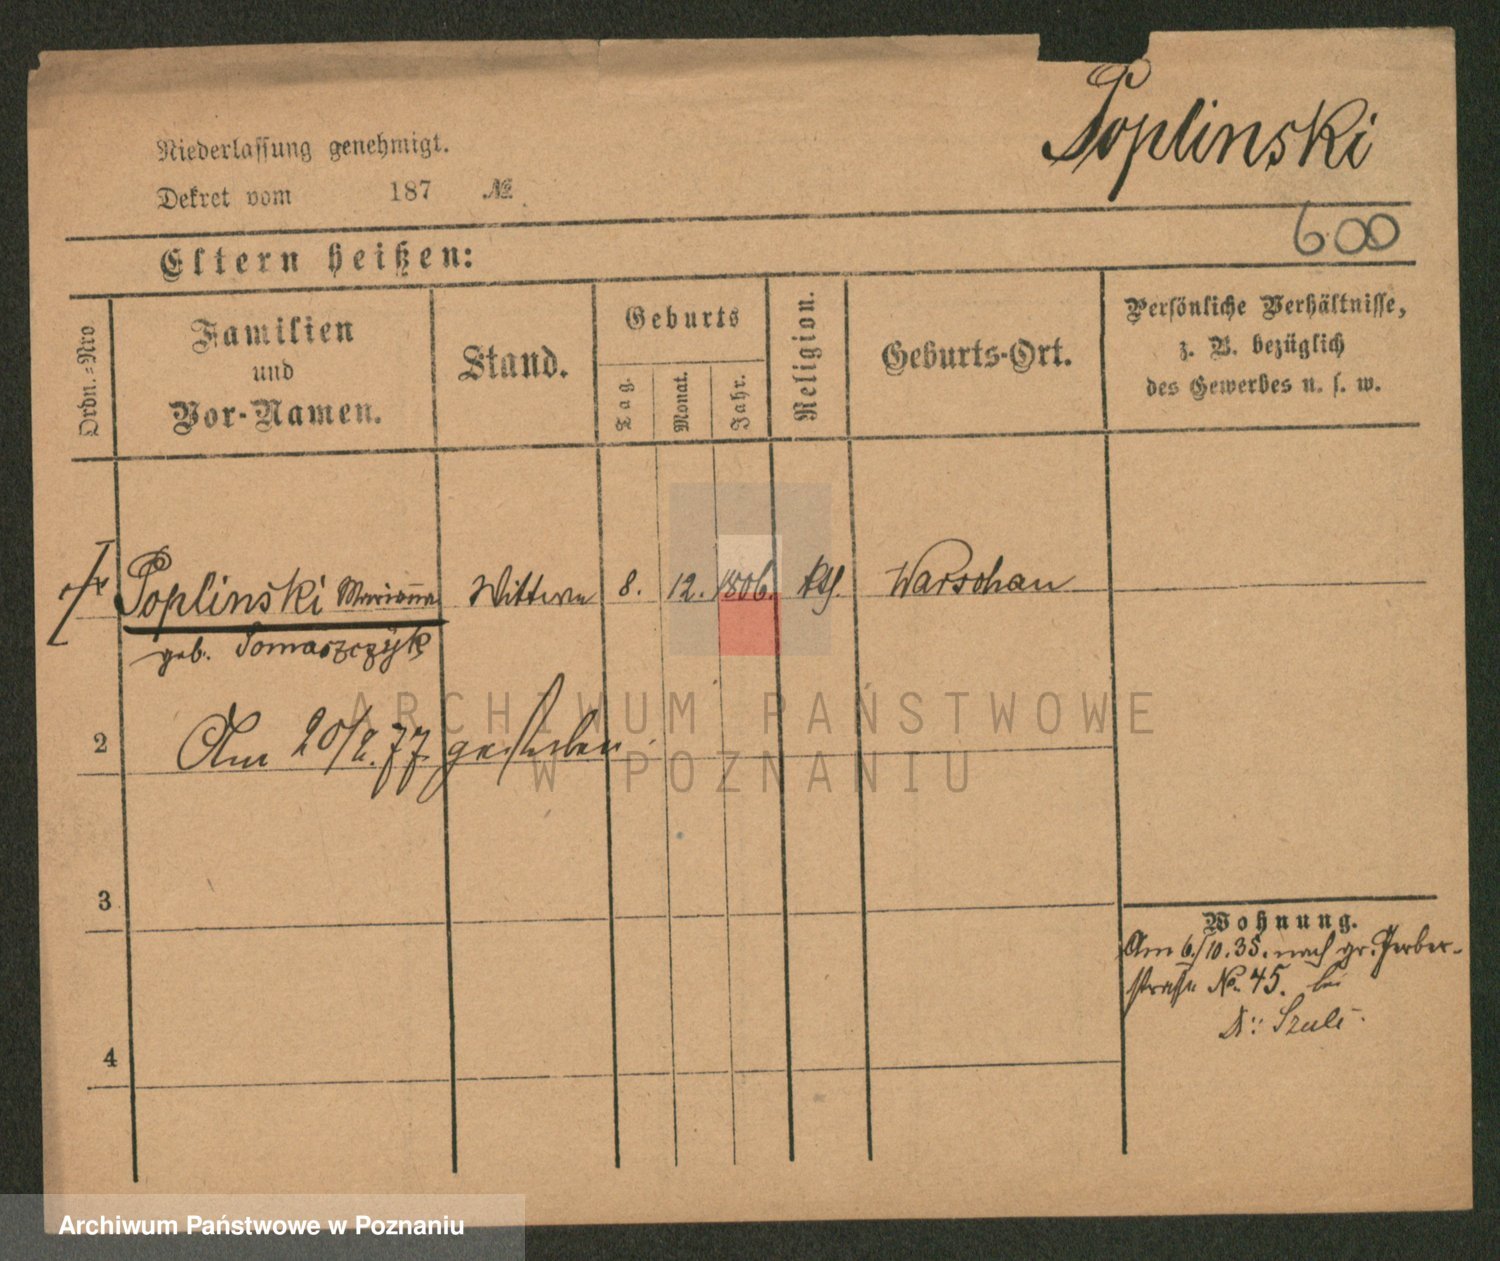 Poplinski
Niederlassung genehmigt.
Dekret vom 187 №
600
Eltern heißen:
Ordn.=Nro
Familien
und
Vor-Namen.
Stand.
Geburts
Tag.
Monat.
Jahr.
Religion.
Geburts-Ort.
Persönliche Verhältnisse,
z. B. bezüglich
des Gewerbes u. s. w.
Poplinski Marianna Wittwe 8. 12. 1806. kth. Warschau
geb. Tomaszczyk
2
Am 20/2.77. gestorben.
3
4
Wohnung.
Am 6/10.35. nach gr. Gerber-
straße No. 45. bei
Szulc.
ARCHIWUM PAŃSTWOWE
W POZNANIU
Archiwum Państwowe w Poznaniu